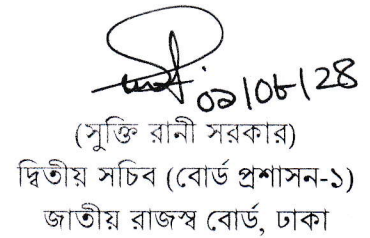 ০১/০৮/২৪
(সুক্তি রানী সরকার)
দ্বিতীয় সচিব (বোর্ড প্রশাসন-১)
জাতীয় রাজস্ব বোর্ড, ঢাকা